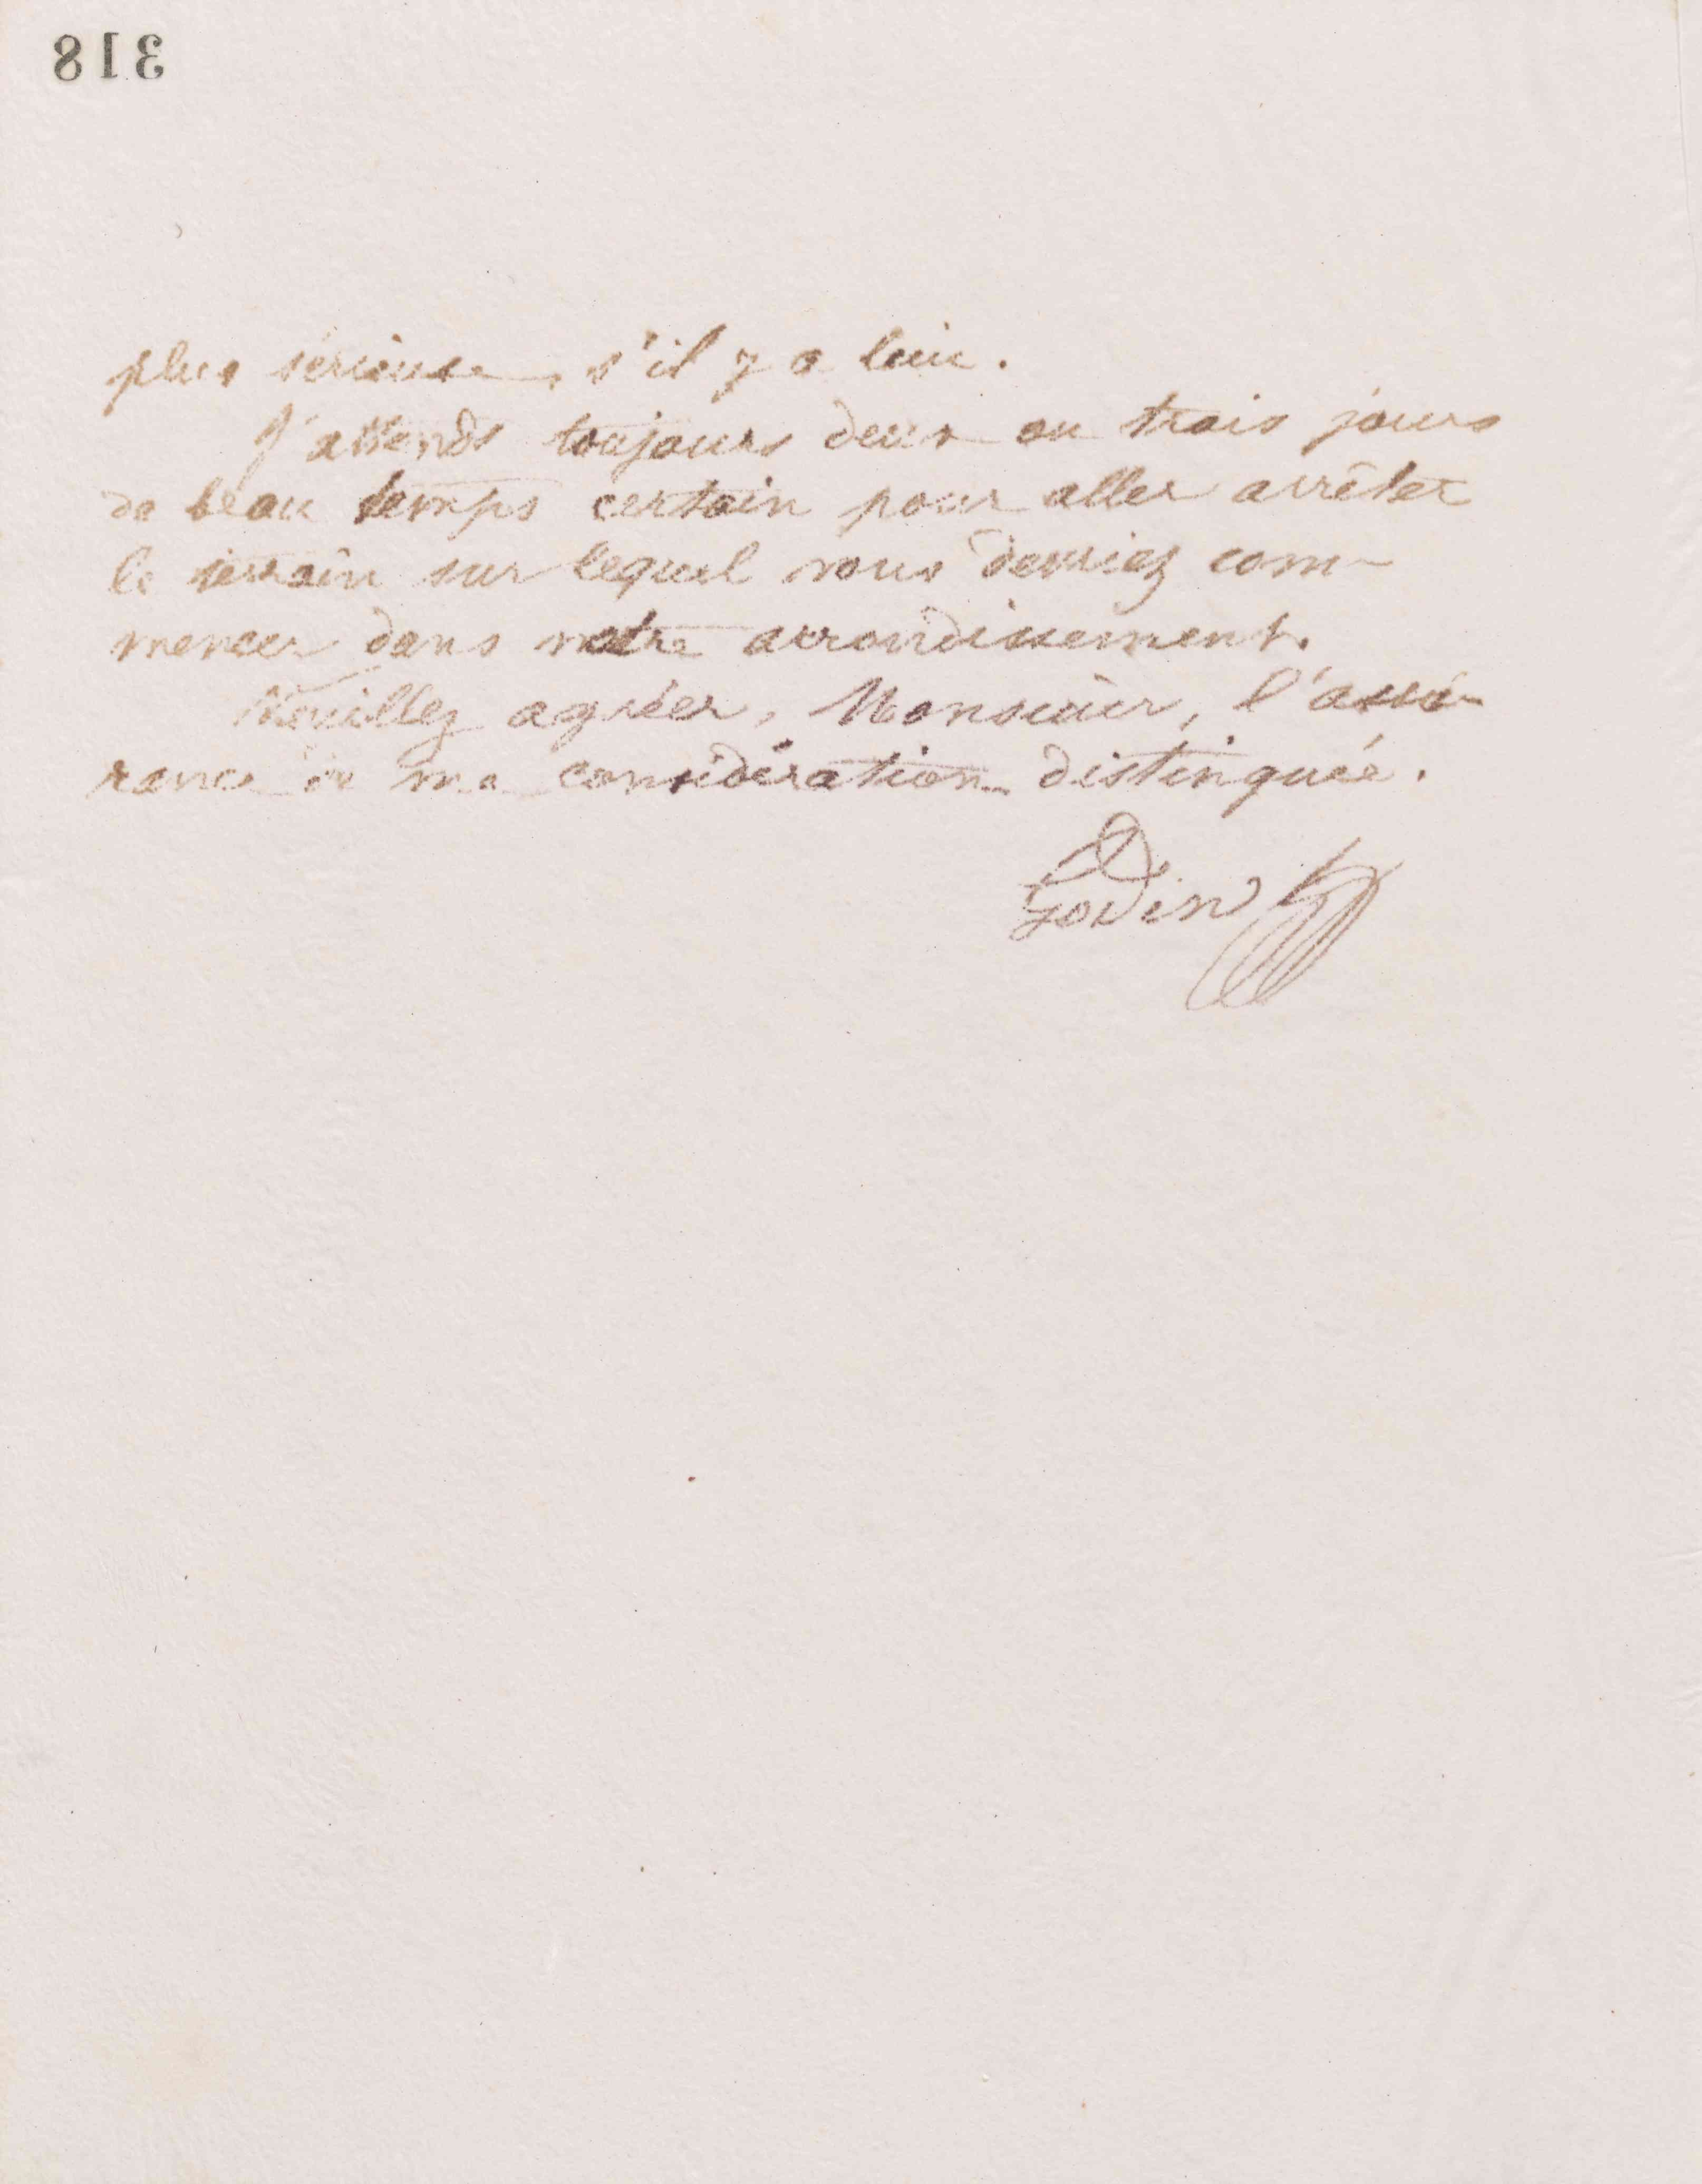 318
plus sérieuse, s'il y a lieu.
J'attends toujours deux ou trois jours
de beau temps certain pour aller arrêter
le terrain sur lequel vous devriez com-
mencer dans notre arrondissement.
Veuillez agréer, Monsieur, l'assu-
rance de ma considération distinguée.
Godin